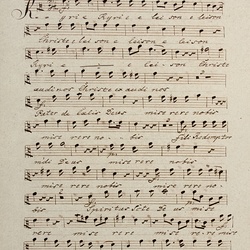 Kyrie Kyrie e lei son e leison
Christe e lei son e leison e leison
Kyrie e lei - son Christe
audi nos Christe ex audi nos
Pater de Celis Deus mise rere nobis
mise rere no - bis Fili Redemptor
mũdi Deus mise rere nobis
mise rere nobis mise rere no -
bis Spiritus Ste Deus mise
rere nobis mise rere mise